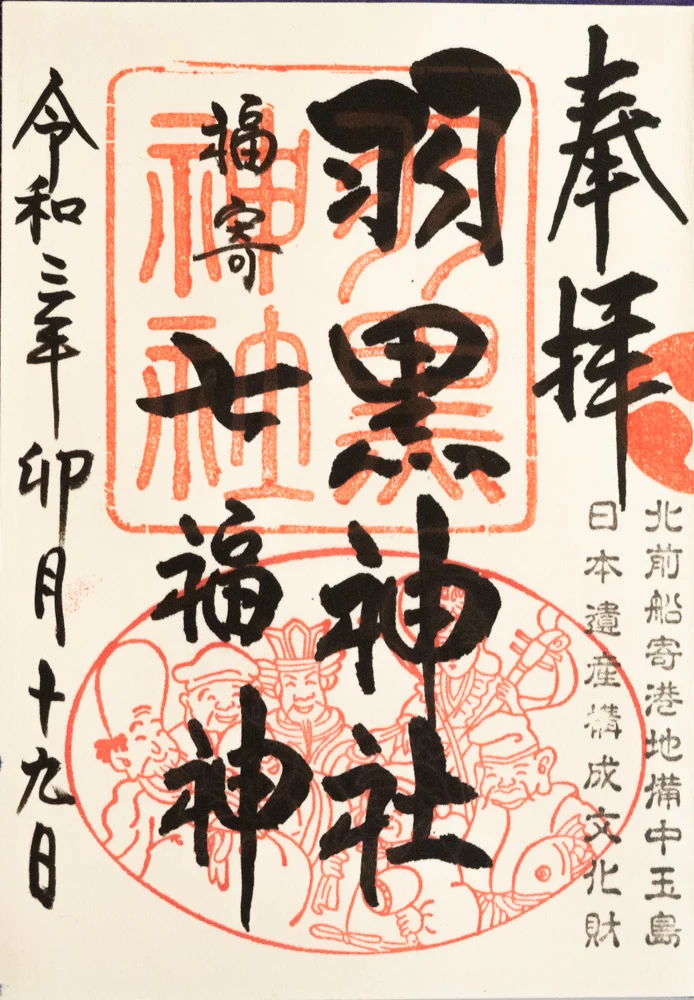 奉拝
北前船寄港地備中玉島
日本遺産構成文化財
羽黒神社
羽黒
神社
福寄
七福神
令和三年卯月十九日